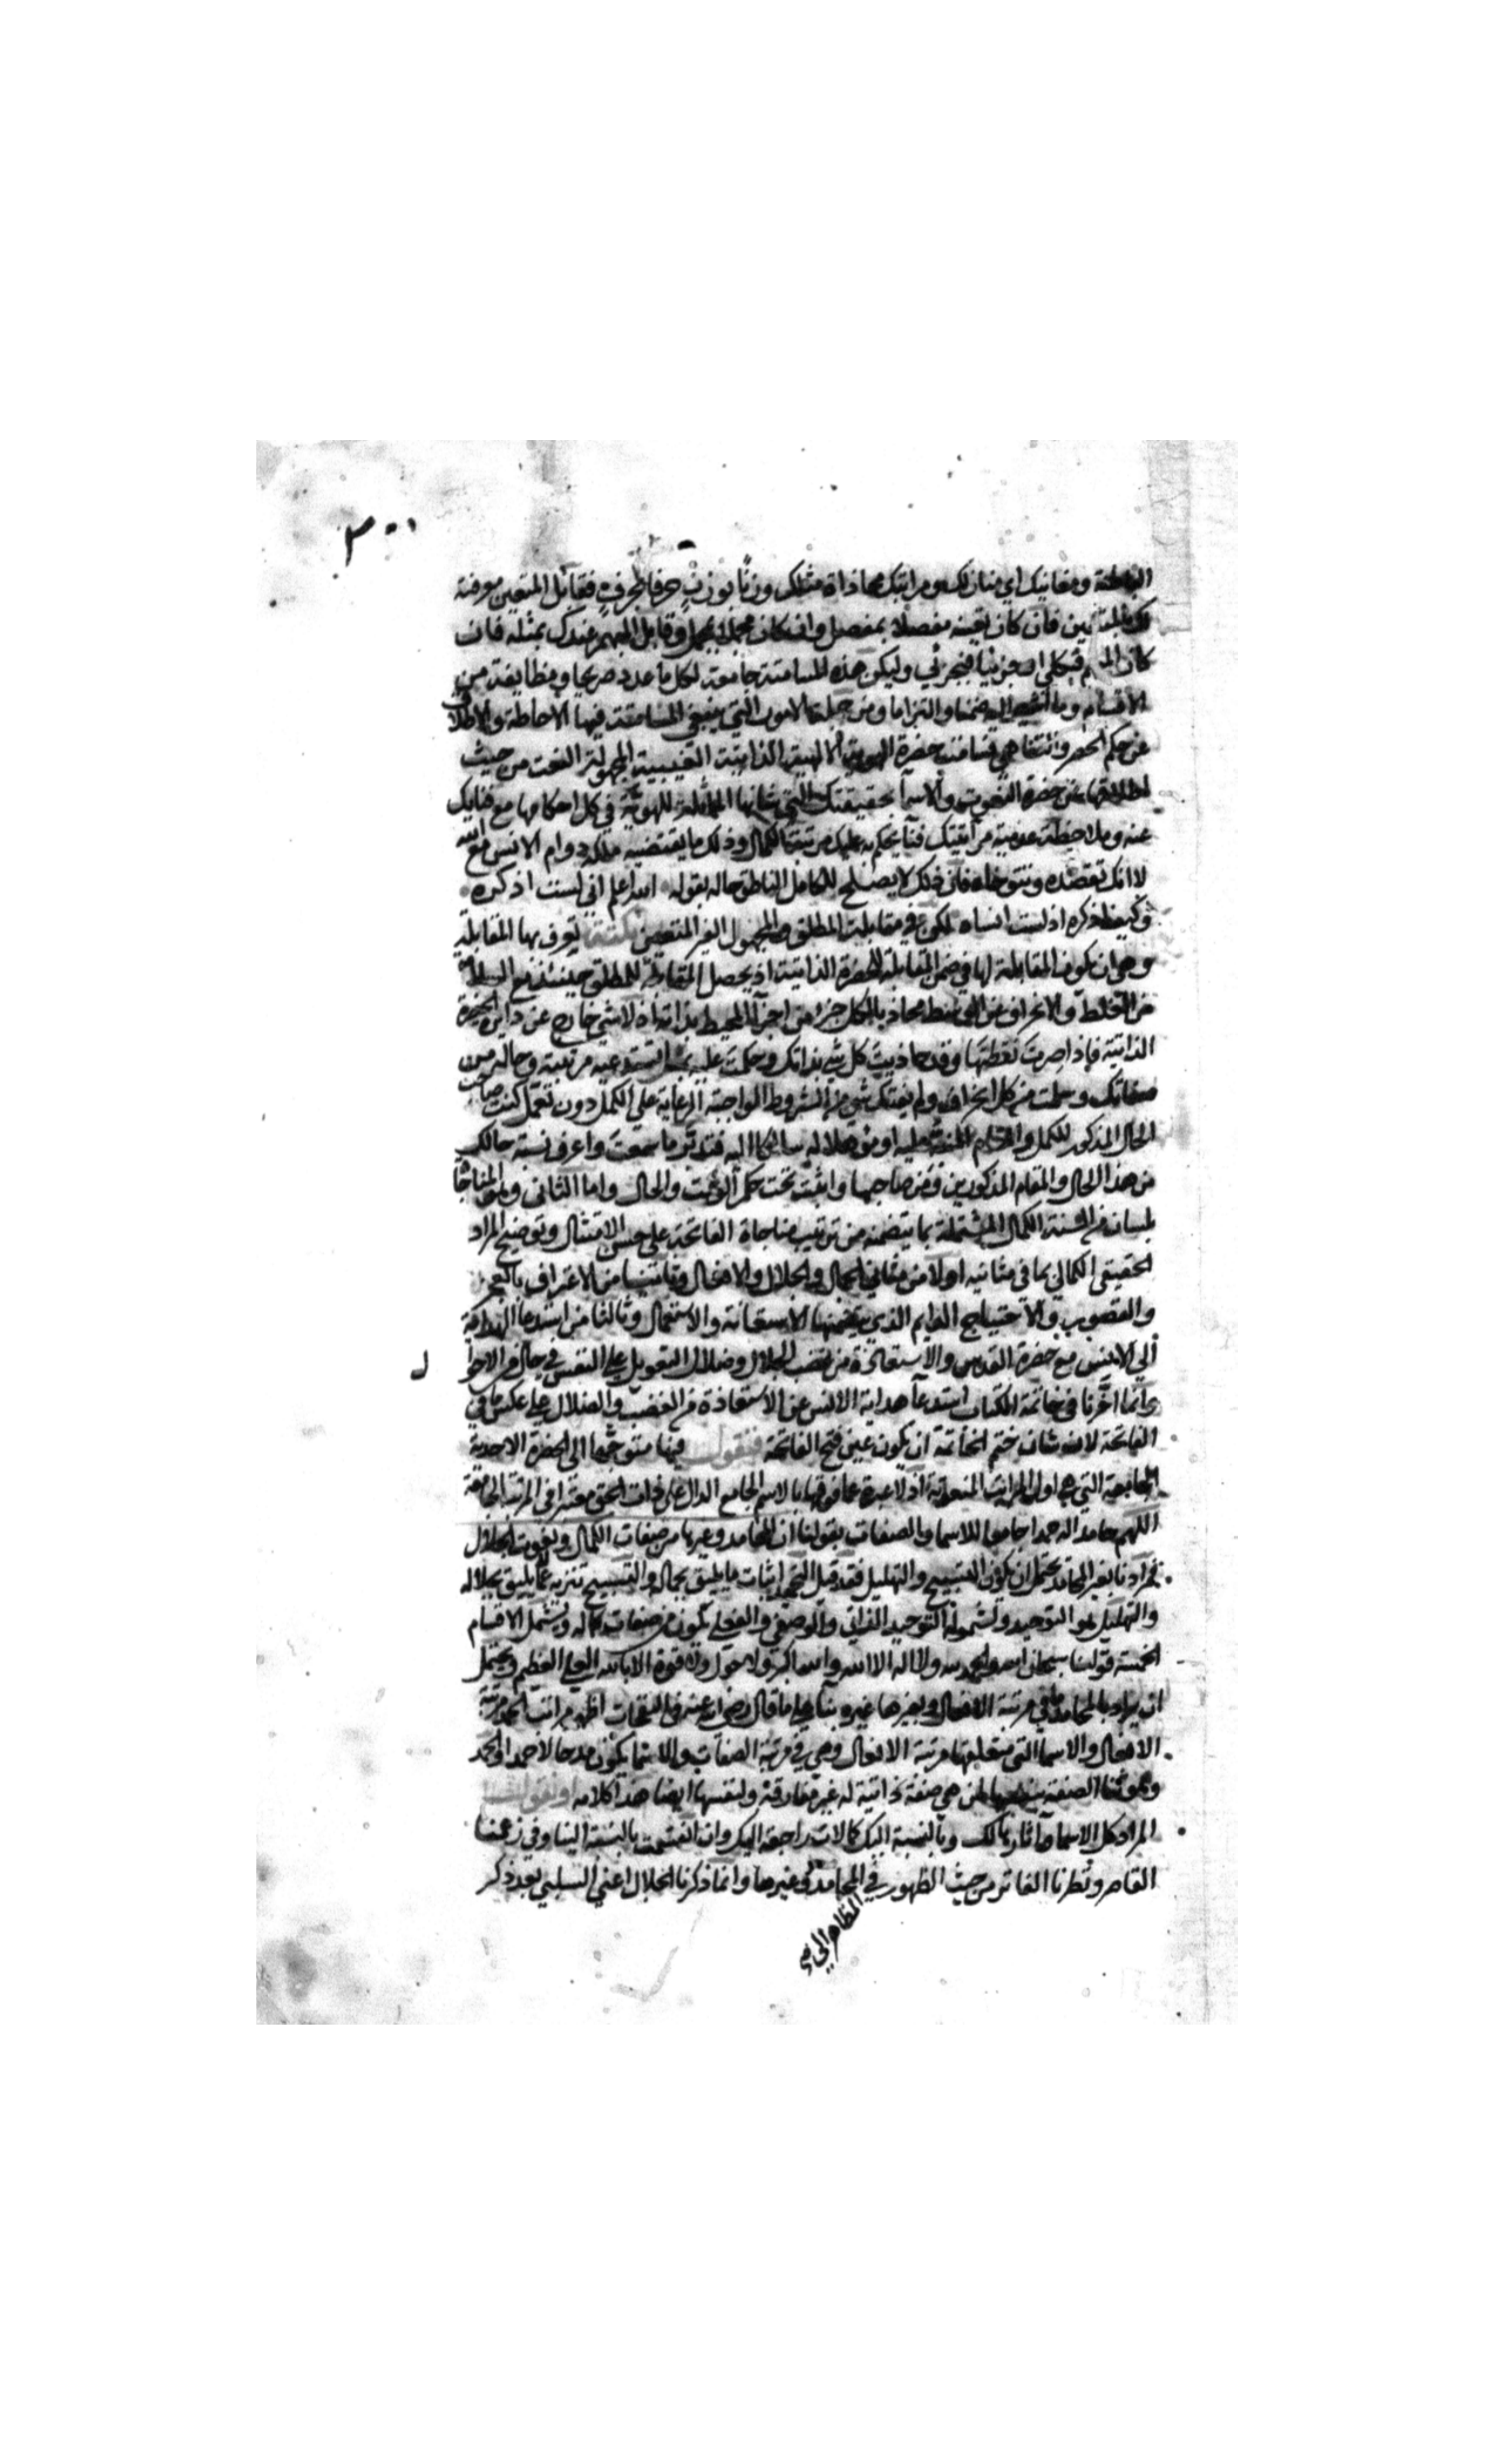 ٣٠٠
الباطنة ومغانيك اي منازلك ومراتبك محاذاة مثلك وزنًا بوزنٍ حرفا بحرفٍ فقابل المتعين معرفته
فان كان تعينه مفصلا بمفصل وان كان مجملا بمجمل وقابل المبهم عندك بمثله فان
كان فبكلي او جزئيا فبجزئي وليكن هذه المسامتة جامعة لكل ما عدد صريحا ومطابقة من
الاقسام وما اشير اليه ضمنا والتزاما ومن جملة الامور التي ينبغي المسامتة فيها الاحاطة والاطلاق
عن حكم الحصر فتسامت حضرة الهوية الالهية الذاتية الغيبية المجهولة النعت من حيث
اطلاقها عن حضرة النعوت والاسما بحقيقتك التي شانها المماثلة للهوية في كل احكامها مع فنايك
عنه وملاحظة عدمية مراتبتك فيما يحكم به عليك مرتبة الكمال وذلك ما يقتضيه ملكة دوام الانس مع الله
لا انك تقصده وتتوخاه فان ذلك لا يصلح للكامل الناطق حاله بقوله الله اعلم اني لست اذكره
وكيف اذكره اذ لست انساه لكن في مقابلة المطلق والمجهول الغير المتعين نكتة يعرف بها المقابلة
وهي ان يكون المقابلة لها في ضمن المقابلة للحضرة الذاتية اذ يحصل المقابلة للمطلق حينئذ مع السلامة
من الغلط والانحراف عن الوسط محاذ بالكل جزء من اجزا المحيط بذاته اذ لا شي خارج عن دايرة الحضرة
الذاتية فاذا صرت نقطتها وقد حاذيت كل شي بذاتك وحكمت عليه بما يستدعيه مرتبته وحاله من
صفاتك وسلمت من كل انحراف ولم يفتك شي من الشروط الواجبة الرعاية على الكمل دون تعمل كنت صاحب
الحال المذكور للكمل والمقام المنبه عليه او مؤهلا له سالكا اليه فتدبر ما سمعت واعرف نسبة حالك
من هذا الحال والمقام المذكورين وممن صاحبهما وانت تحت حكم الوقت والحال واما الثاني وهو المناجاة
بلسان من السنة الكمال المشتملة بما يتضمنه من ترتيب مناجاة الفاتحة على حسن الامتثال وتوضيح المراد
الحقيقي الكمالي بما في مثانيه اولا من مثاني الجمال والجلال والافعال وثانيا من الاعتراف بالعجز
والقصور والاحتياج الدايم الذي يتضمنها الاستعانة والاستكمال وثالثا من استدعا الهداية
الى الانس مع حضرة القدس والاستعاذة من غضب الجلال وضلال التعويل على النفس في حال من الاحوا
ل
وانما اخرنا في خاتمة الكتاب استدعا هداية الانس عن الاستعاذة من الغضب والضلال على عكس ما في
الفاتحة لان شان ختم الخاتمة ان يكون عين فتح الفاتحة فنقول فيها متوجها الى الحضرة الاحدية
الجامعة التي هي اول المراتب المنعوتة اذ لا عبرة عما فوقها بالاسم الجامع الدال على ذات الحق معتبرا في المرتبة الجامعة
اللهم حامدا له حمدا جامعا للاسما والصفات بقولنا ان المحامد وغيرها من صفات الكمال ونعوت الجلال
فمرادنا بغير المحامد يحتمل ان يكون التسبيح والتهليل فقد قيل التحميد اثبات ما يليق بجماله والتسبيح تنزيه عما لا يليق بجلاله
والتهليل هو التوحيد ولشموله التوحيد الذاتي والوصفي والفعلي يكون من صفات كماله ويشمل الاقسام
الخمسة قولنا سبحان الله والحمد لله ولا اله الا الله والله اكبر ولا حول ولا قوة الا بالله العلي العظيم ويحتمل
ان يراد بالمحامد ما في مرتبة الافعال وبغيرها غيره بنا على ما قال رضي الله عنه في النفحات اظهر مراتب الحمد مرتبة
الافعال والاسما التي متعلقها مرتبة الافعال وهي في مرتبة الصفات والاسما يكون مدحا لا حمدا والحمد
وهو ثنا الصفة بنفسها لمن هي صفة ذاتية له غير مفارقة ولنفسها ايضا هذا كلامه او نقول
المراد كل الاسما واثارها لك وبالنسبة اليك كمالات راجعة اليك وان انقسمت بالنسبة الينا وفي زعمنا
القاصر ونظرنا الفاتر من حيث الظهور في المحامد وغيرها وانما ذكرنا الجلال اعني السلبي بعد ذكر